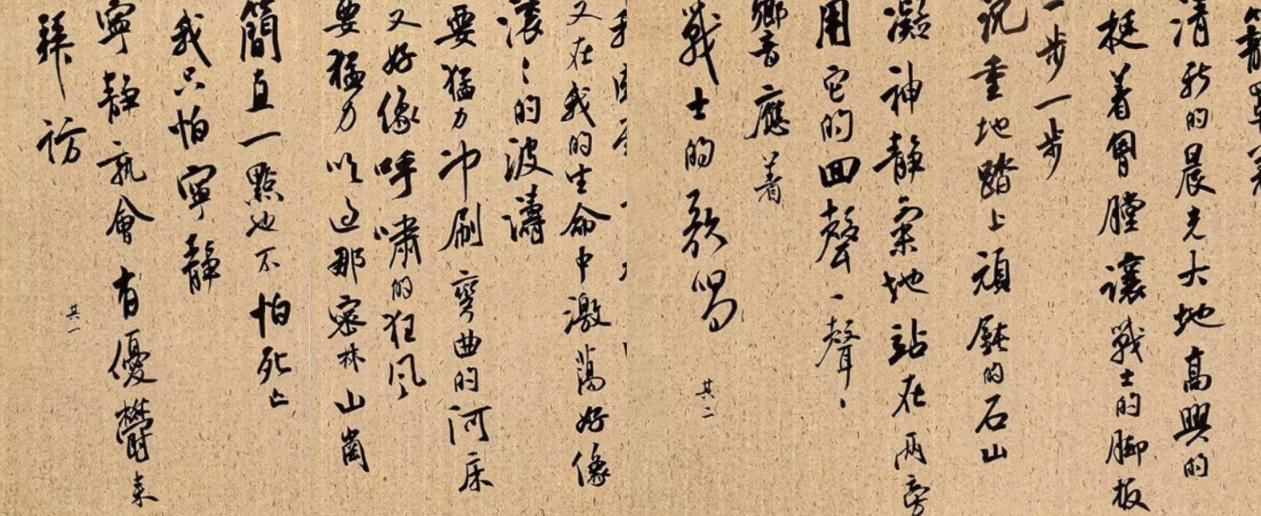 籠罩着
清新的晨光大地高興的
挺着胸膛讓戰士的脚板
一步一步
沉重地踏上頑的石山
凝神静氣地站在两旁
用它的回聲一聲、
響應着
戰士的歌唱
其二
又在我的生命中激蕩好像
滚々的波濤
要猛力冲刷彎曲的河床
又好像呼嘯的狂风
要猛力吹过那密林山崗
簡直一點也不怕死亡
我只怕寧静
寧静就會有優鬱来
拜訪
其一